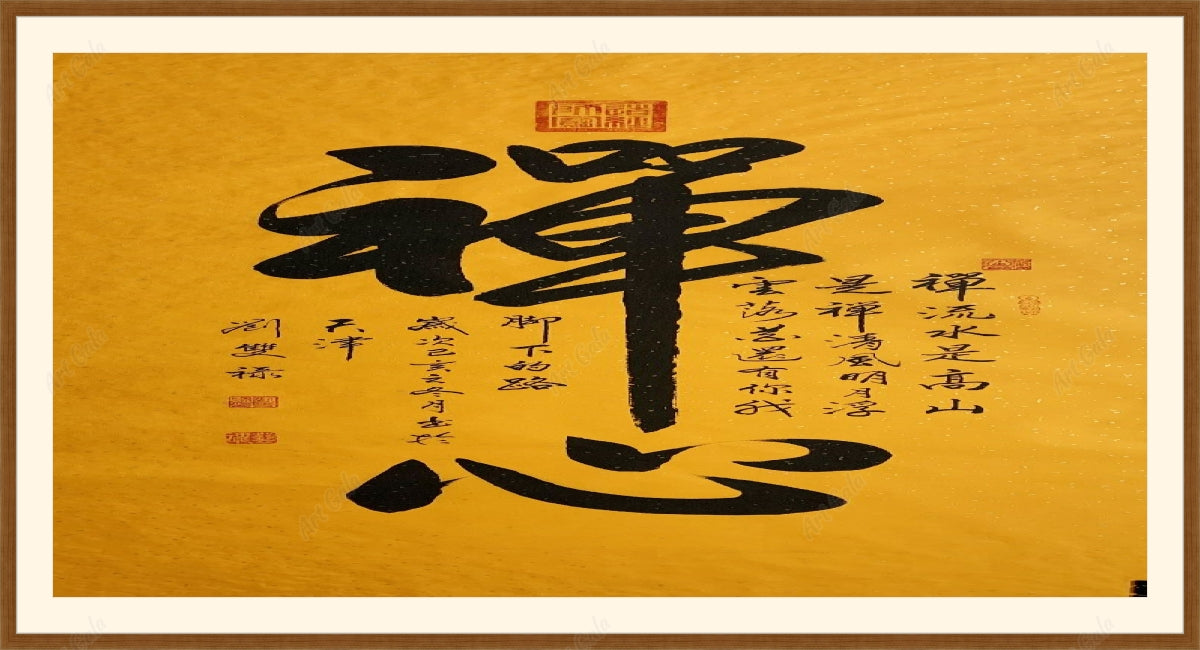 禪心
禪流水是高山
是禪清風明月浮
雲落花還有你我
脚下的路
歲次己亥冬月書於
天津
劉雙祿
Art Gala